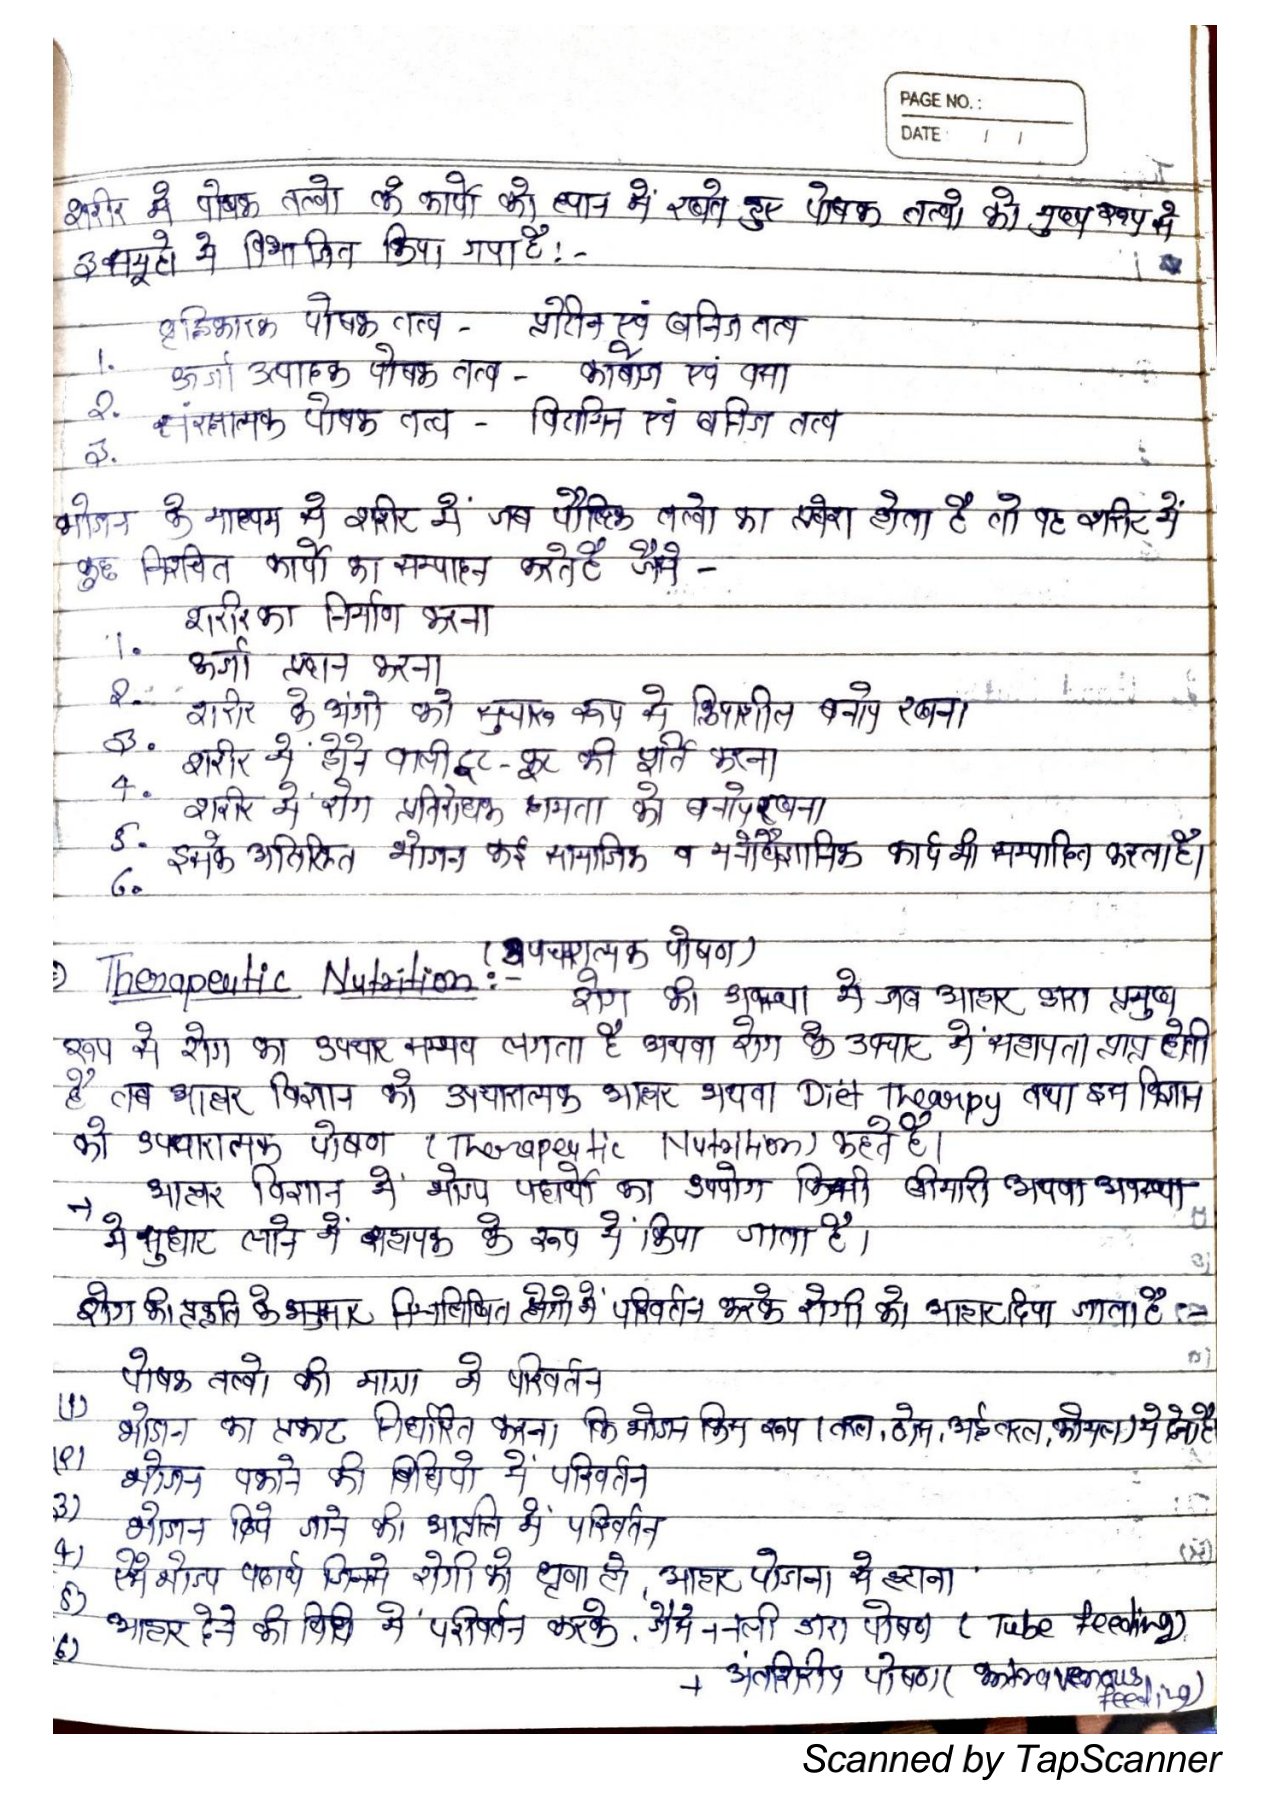 PAGE NO. :
DATE / /
शरीर मे पोषक तत्वो के कार्यो को ध्यान में रखते हुए पोषक तत्वो को मुख्य रूप से
3 समूहो मे विभाजित किया गया है :-
1. वृद्धिकारक पोषक तत्व - प्रोटीन एवं खनिज तत्व
2. ऊर्जा उत्पादक पोषक तत्व - कार्बोज एवं वसा
3. संरक्षात्मक पोषक तत्व - विटामिन एवं खनिज तत्व
भोजन के माध्यम से शरीर में जब पौष्टिक तत्वो का प्रवेश होता है तो वह शरीर में
कुछ निश्चित कार्यो का सम्पादन करते है जैसे -
1. शरीर का निर्माण करना
2. ऊर्जा प्रदान करना
3. शरीर के अंगो को सुचारू रूप से क्रियाशील बनाये रखना
4. शरीर में होने वाली टूट-फूट की पूर्ति करना
5. शरीर में रोग प्रतिरोधक क्षमता को बनाये रखना
6. इसके अतिरिक्त भोजन कई सामाजिक व मनोवैज्ञानिक कार्य भी सम्पादित करता है।
Therapeutic Nutrition :- (उपचारात्मक पोषण)
रोग की अवस्था मे जब आहार द्वारा प्रमुख
रूप से रोग का उपचार सम्भव लगता है अथवा रोग के उपचार में सहायता प्राप्त होती
है तब आहार विज्ञान को उपचारात्मक आहार अथवा Diet Thearpy तथा इस विज्ञान
को उपचारात्मक पोषण (Therapeutic Nutrition) कहते है।
→ आहार विज्ञान में भोज्य पदार्थो का उपयोग किसी बीमारी अथवा अवस्था
मे सुधार लाने में सहायक के रूप में किया जाता है।
रोग की प्रकृति के अनुसार निम्नलिखित में परिवर्तन करके रोगी को आहार दिया जाता है :-
(1) पोषक तत्वो की मात्रा मे परिवर्तन
(2) भोजन का प्रकार निर्धारित करना कि भोजन किस रूप (तरल, ठोस, अर्द्ध तरल, कोमल) मे देना है
3) भोजन पकाने की विधियो में परिवर्तन
4) भोजन दिये जाने की आवृति में परिवर्तन
5) ऐसे भोज्य पदार्थ जिनसे रोगी को घृणा हो, आहार योजना से हटाना
6) आहार देने की विधि मे परिवर्तन करके, जैसे → नली द्वारा पोषण (Tube feeding)
→ अंतःशिरीय पोषण (Intravenous feeding)
Scanned by TapScanner